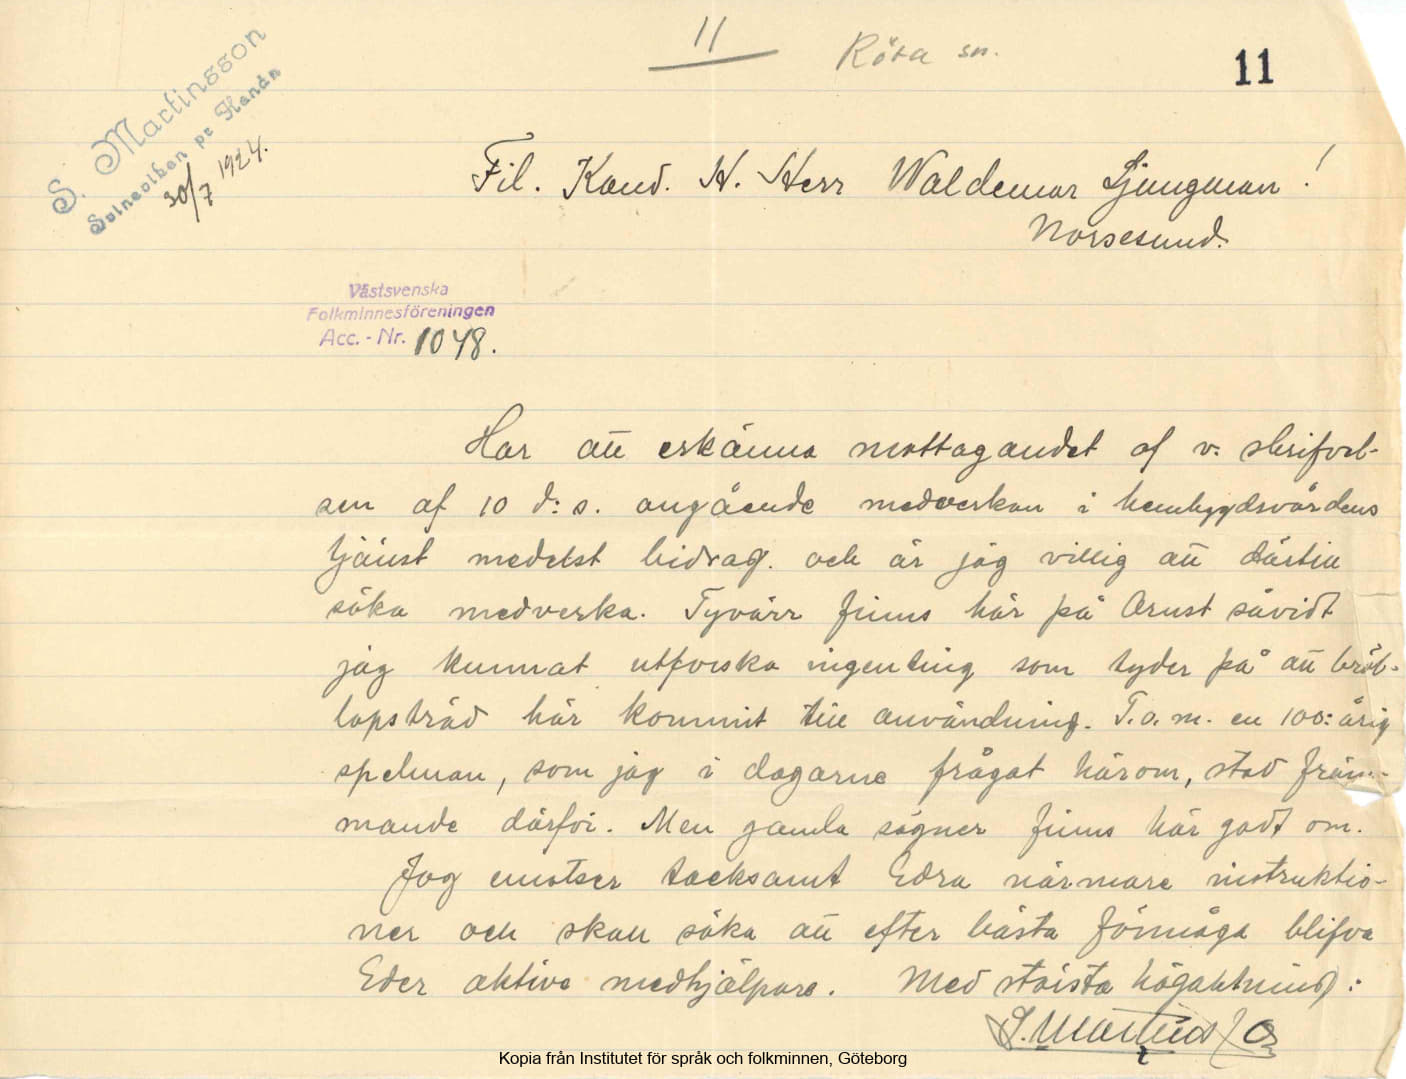 11
Röra sn.
11
S. Martinsson
pr Henån
30/7 1924.
Fil. Kand. H. Herr Waldemar Ljungman!
Norsesund.
Västsvenska
Folkminnesföreningen
Acc. - Nr. 1048.
Har att erkänna mottagandet af v. skrifvel-
sen af 10 d:s. angående medverkan i hembygdsvårdens
tjänst medelst bidrag. och är jag villig att därtill
söka medverka. Tyvärr finns här på Orust såvidt
jag kunnat utforska ingenting som tyder på att bröl-
lopsträd här kommit till användning. T.o.m. en 100:årig
spelman, som jag i dagarne frågat härom, stod främ-
mande därför. Men gamla sägner finns här godt om.
Jag emotser tacksamt Edra närmare instruktio-
ner och skall söka att efter bästa förmåga blifva
Eder aktive medhjälpare. Med största högaktning:
S. Martinsson
Kopia från Institutet för språk och folkminnen, Göteborg